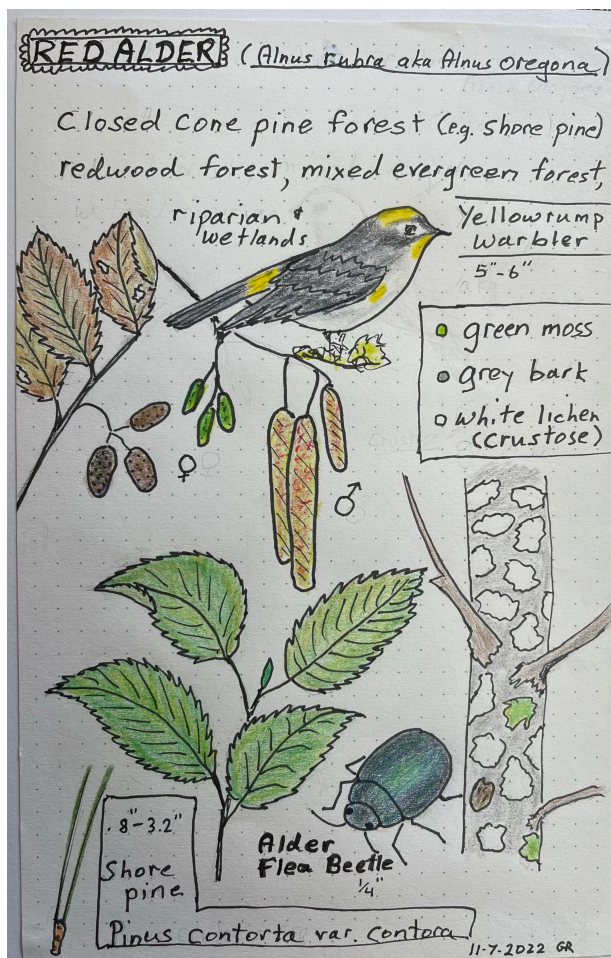 RED ALDER (Alnus rubra aka Alnus oregona)
Closed cone pine forest (e.g. shore pine)
redwood forest, mixed evergreen forest,
riparian &
wetlands
Yellowrump
warbler
5"-6"
green moss
grey bark
white lichen
(crustose)
♀
♂
.8"-3.2"
Shore
pine
Pinus contorta var. contora
Alder
Flea Beetle
1/4"
11-7-2022 GR